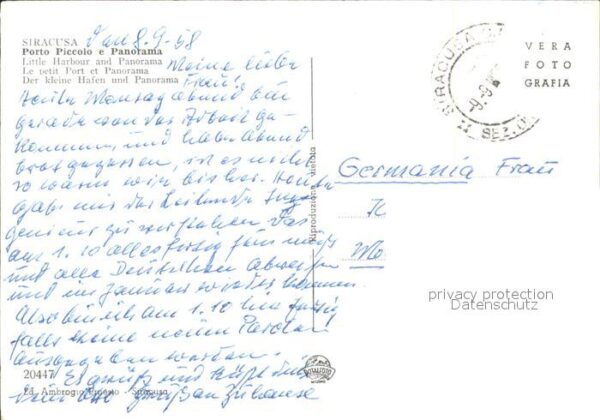 SIRACUSA den 8.9.58
Porto Piccolo e Panorama
Little Harbour and Panorama
Le petit Port et Panorama
Der kleine Hafen und Panorama
Meine liebe
Frau!
Heute Montag abend bin
gerade von der Arbeit ge-
kommen, und habe Abend
brot gegessen, ist es nicht
so warm wie bisher. Heute
gab mir der leitende Inge
genieur zu verstehen das
am 1.10 alles fertig sein muß
und alle Deutschen
und im Januar wieder kommen
Also bin ich am 1.10 hier fertig
falls keine neuen Parolen
ausgegeben werden.
Es grüßt und küßt
Grüße an Zuhause
20447
Ed. Ambrogio - Siracusa
Riproduzione vietata
VERA
FOTO
GRAFIA
SIRACUSA
8-9
Germania Frau
privacy protection
Datenschutz